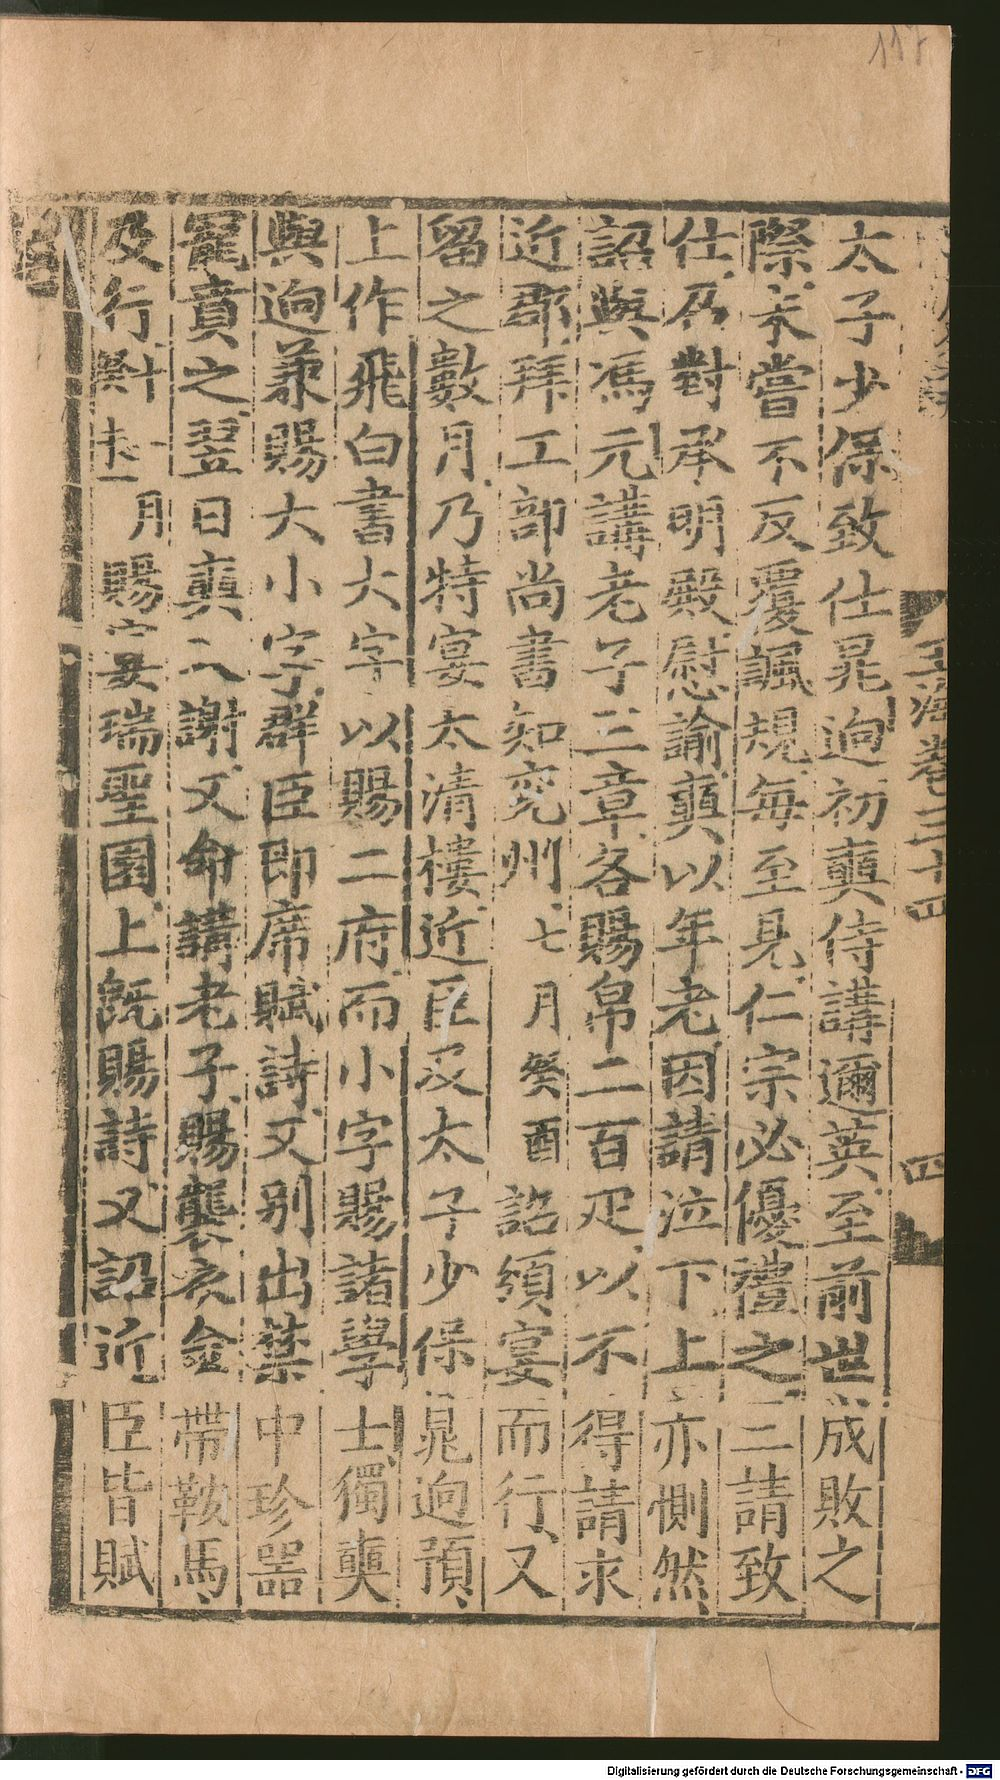 117
玉海卷三十四
四
太子少保致仕晁迥初奭侍講邇英至前世成敗之
際未嘗不反覆諷規每至見仁宗必優禮之三請致
仕乃對承明殿慰諭奭以年老因請泣下上亦惻然
詔與馮元講老子三章各賜帛二百疋以不得請求
近郡拜工部尚書知兗州七月癸酉詔須宴而行又
留之數月乃特宴太清樓近臣及太子少保晁迥預
上作飛白書大字以賜二府而小字賜諸學士獨奭
與迥兼賜大小字群臣即席賦詩又別出禁中珍器
寵賁之翌日奭入謝又命講老子賜襲衣金帶鞍馬
及行 月賜宴瑞聖園上既賜詩又詔近臣皆賦
Digitalisierung gefördert durch die Deutsche Forschungsgemeinschaft - DFG